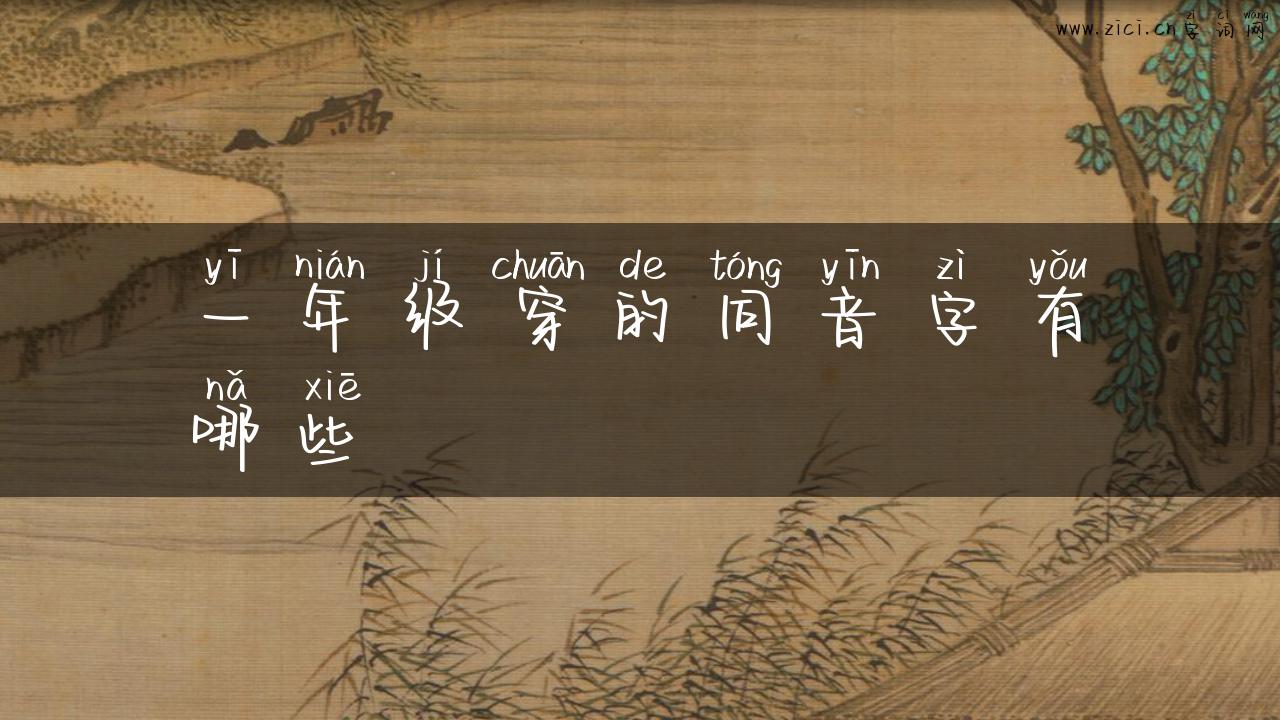 zì cí wǎng
www.zici.cn字词网
yī nián jí chuān de tóng yīn zì yǒu
一年级穿的同音字有
nǎ xiē
哪些